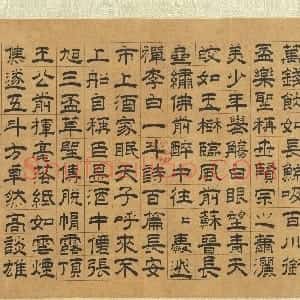 萬錢飲如長鯨吸百川銜
盃樂聖稱世賢宗之蕭灑
美少年舉觴白眼望青天
皎如玉樹臨風前蘇晉長
齋繡佛前醉中往往愛逃
禪李白一斗詩百篇長安
市上酒家眠天子呼來不
上船自稱臣是酒中僊張
旭三盃草聖傳脫帽露頂
王公前揮毫落紙如雲煙
焦遂五斗方卓然高談雄